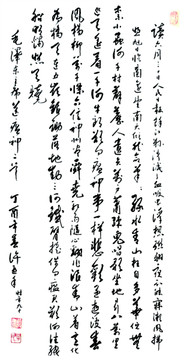 读六月三十日人民日报余江县消灭了血吸虫浮想联翩夜不能寐微风拂
煦旭日临窗遥望南天欣然命笔绿水青山枉自多华佗无
奈小虫何千村薜荔人遗矢万户萧疏鬼唱歌坐地日行八万里
巡天遥看一千河牛郎欲问瘟神事一样悲欢逐逝波春
风杨柳万千条六亿神州尽舜尧红雨随心翻作浪青山着意化
为桥天连五岭银锄落地动三河铁臂摇借问瘟君欲何往纸
船明烛照天烧
毛泽东主席送瘟神二首
丁酉年春许